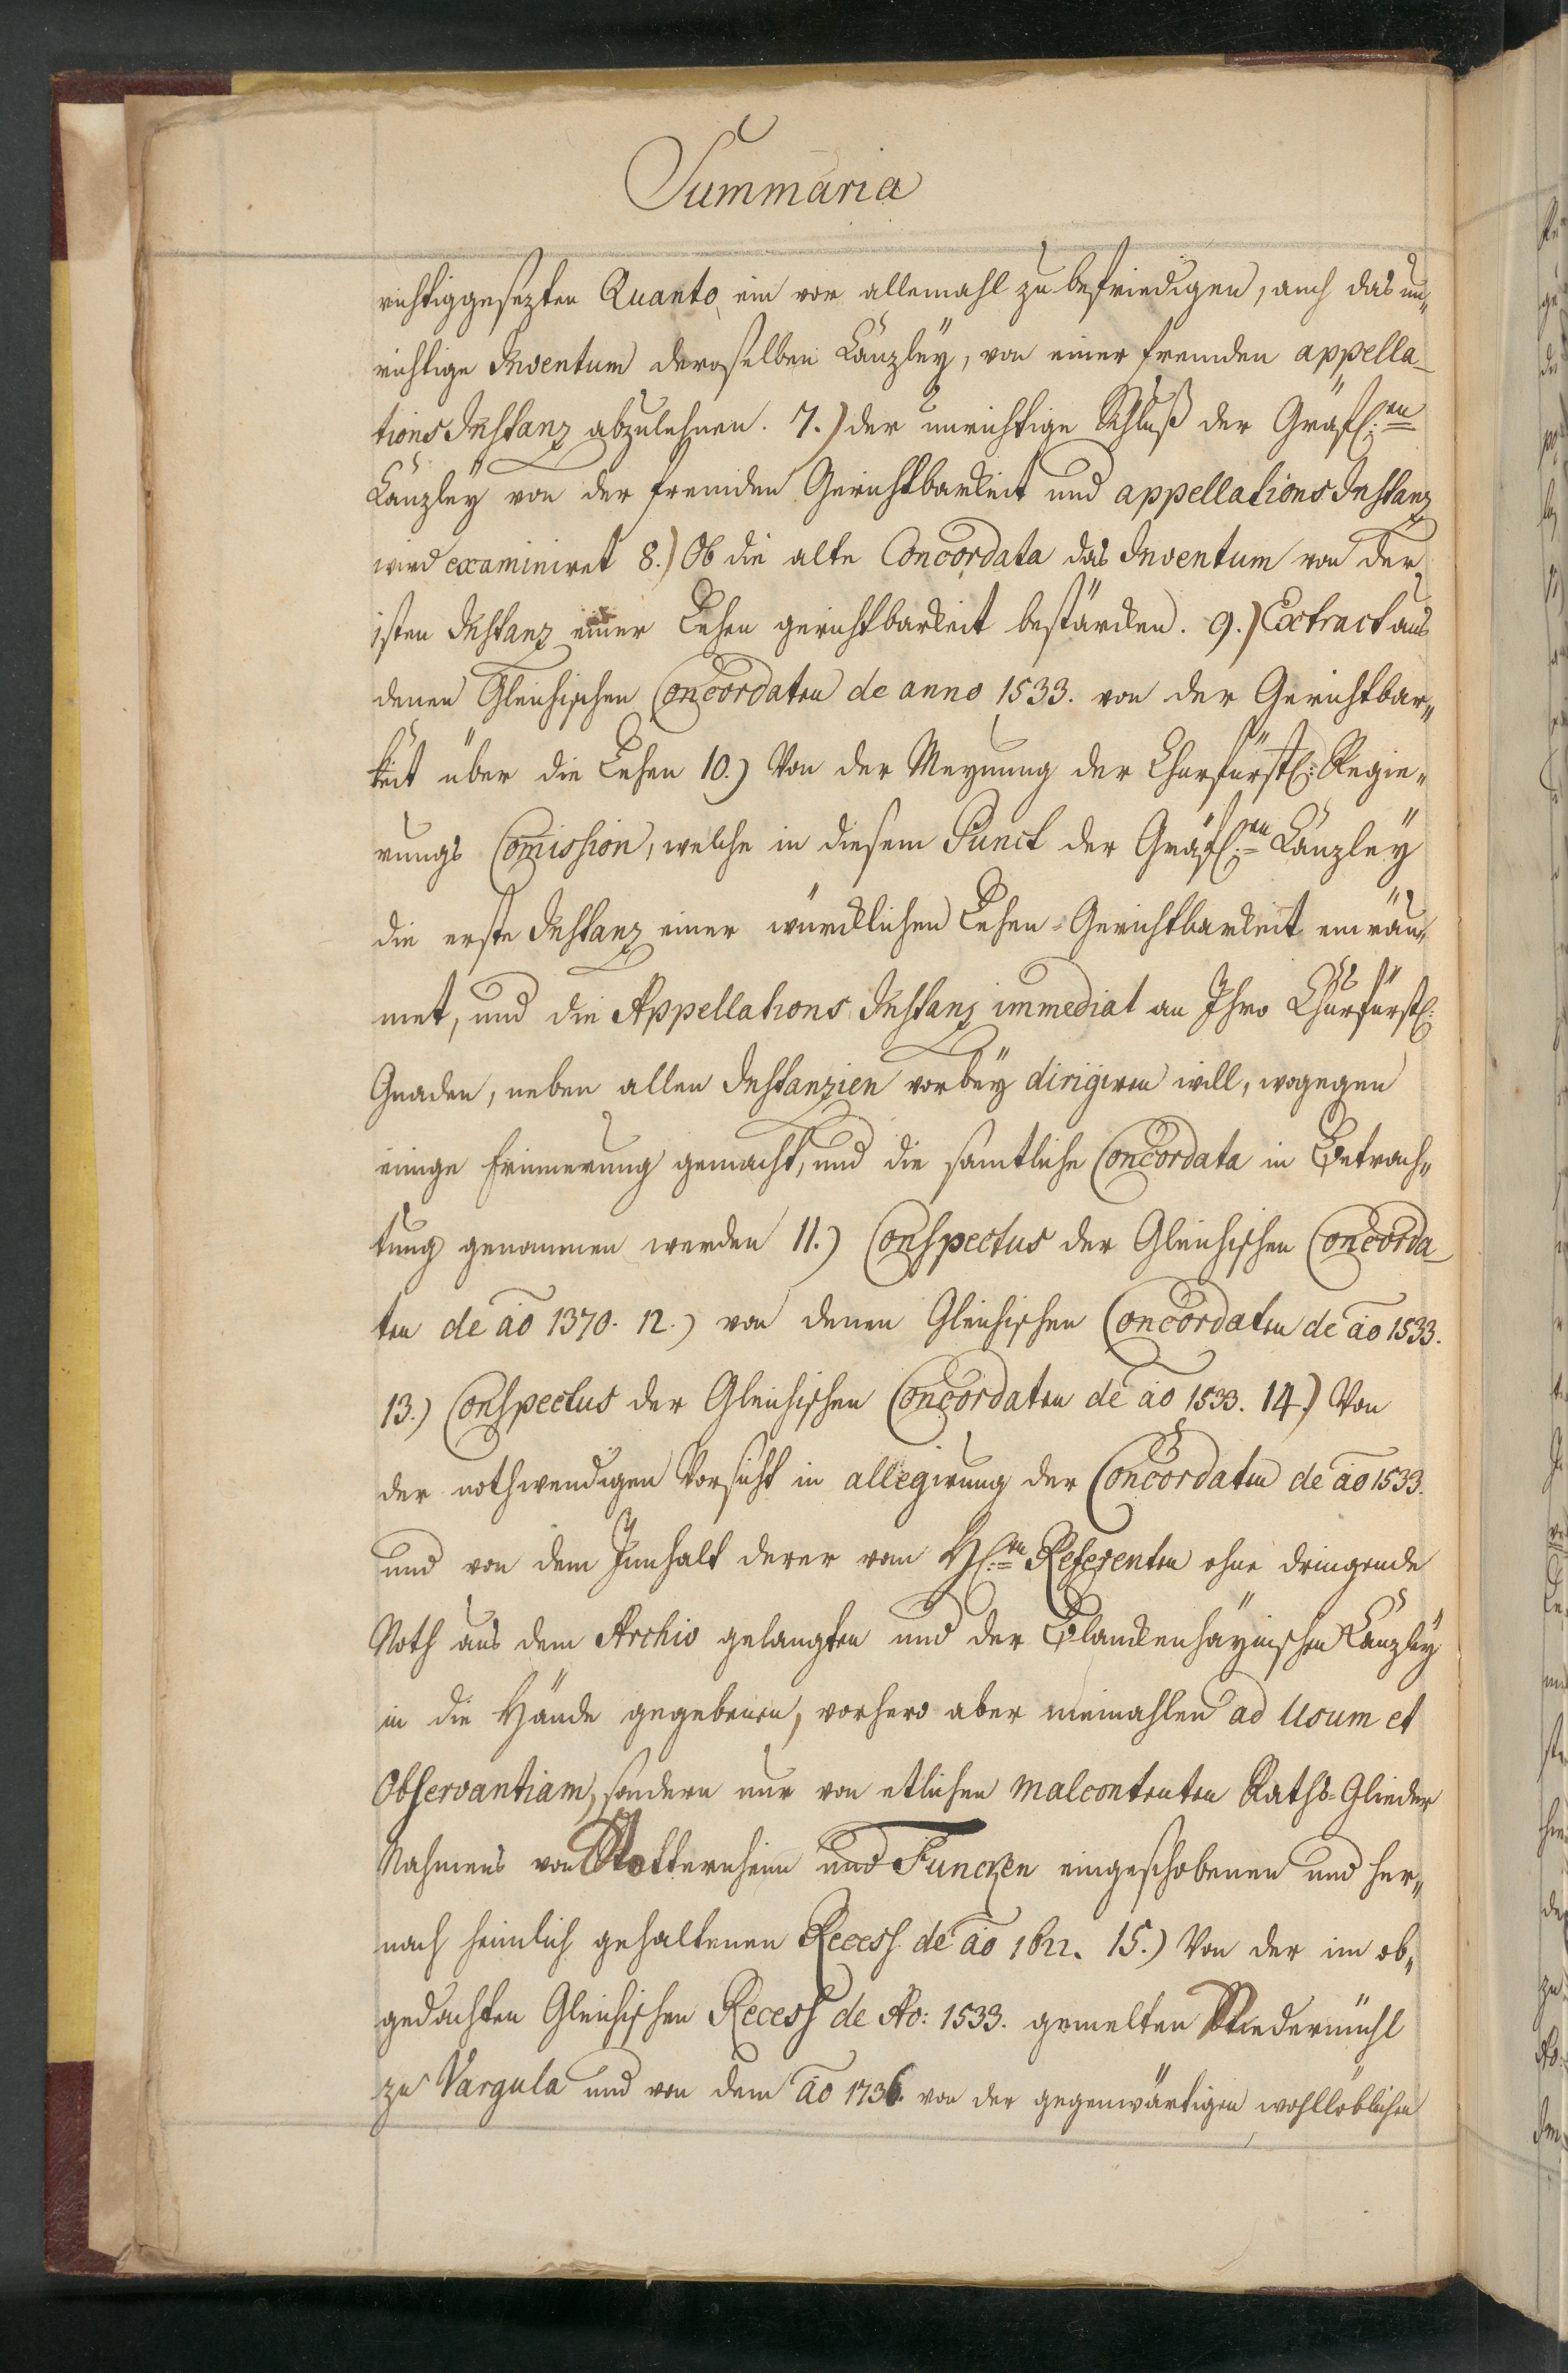 Summaria
richtiggesezten Quanto, ein vor allemahl zu befriedigen, auch das un„
richtige Inventum deroselben Canzley, von einer fremden appella-
tions Instanz abzulehnen. 7.) der unrichtige Schluß der Gräfl:en
Canzley von der fremden Gerichtbarkeit und appellations Instanz
wird examiniret 8.) Ob die alte Concordata das Inventum von der
1sten Instanz einer Lehen gerichtbarkeit bestärcken. 9.) Extract aus
denen Gleichischen Concordaten de anno 1533. von der Gerichtbar„
keit über die Lehen 10.) Von der Meynung der Churfürstl: Regie„
rungs Comission, welche in diesem Punct der Gräfl:en Canzley
die erste Instanz einer würcklichen Lehen-Gerichtbarkeit einräu„
met, und die Appellations Instanz immediat an Ihro Churfürstl:
Gnaden, neben allen Instanzien vorbey dirigiren will, wogegen
einige Erinnerung gemacht, und die samtliche Concordata in Betrach„
tung genommen werden 11.) Conspectus der Gleichischen Concorda-
ten de ao 1370. 12.) von denen Gleichischen Concordaten de ao 1533.
13.) Conspectus der Gleichischen Concordaten de ao 1533. 14.) Von
der nothwendigen Vorsicht in allegirung der Concordaten de ao 1533.
und von dem Innhalt derer vom H:en Referenten ohne dringende
Noth aus dem Archiv gelangten und der Blanckenhaynischen Canzley
in die Hände gegebenen, vorhero aber niemahlen ad Usum et
Observantiam, sondern nur von etlichen malcontenten Raths-Glieder
Nahmens von Stotternheim und Funcken eingeschobenen und her„
nach heimlich gehaltenen Recess de ao 1622. 15.) Von der im ob„
gedachten Gleichischen Recess de Ao: 1533. gemelten Riedermühl
zu Vargula und von dem ao 1736. von der gegenwärtigen wohllöblichen